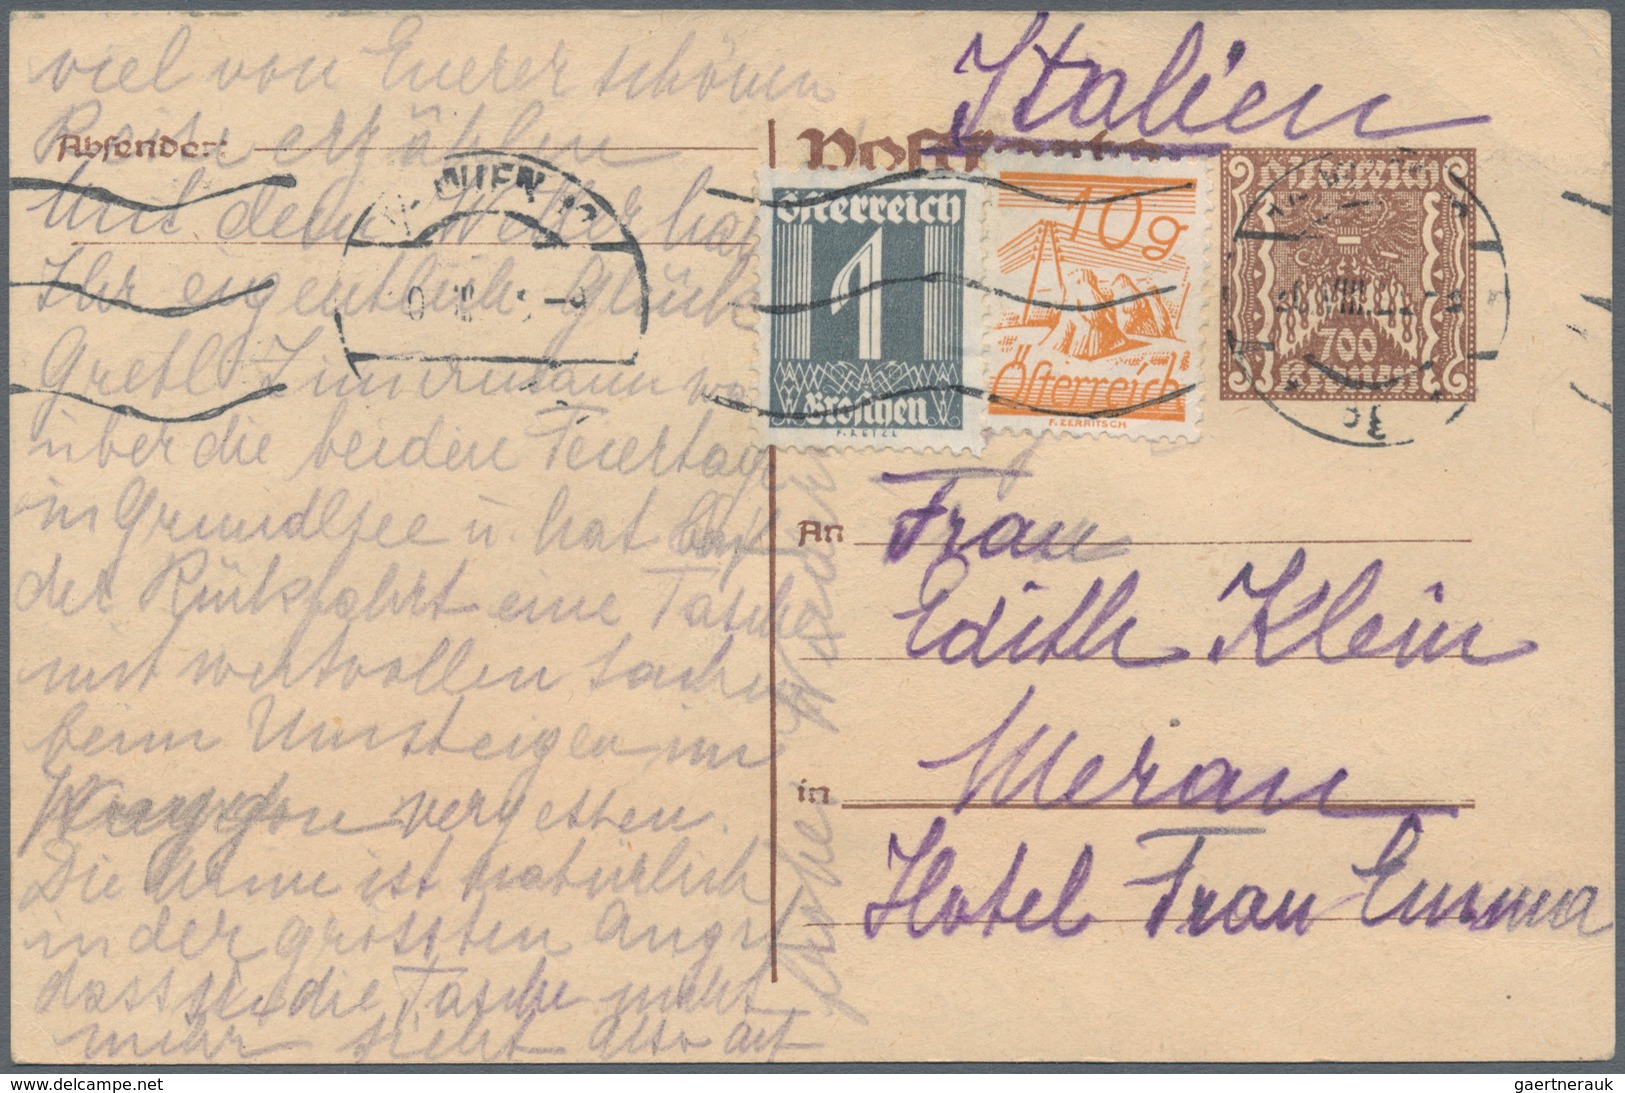 viel von Eurer schönen
Reise erzählen
Mit dem Wetter habt
Ihr eigentlich Glück
Gretl Zimmermann war
über die beiden Feiertage
in Grundlsee u. hat auf
der Rückfahrt eine Tasche
mit wertvollen Sachen
beim Umsteigen im
Waggon vergessen.
Die Arme ist natürlich
in der grössten Angst
dass sie die Tasche nicht
mehr sieht also auf
Wiedersehen
Absender:
WIEN
Italien
Postkarte
Österreich
1
Groschen
10g
Österreich
F. ZERRITSCH
Österreich
700
Kronen
An Frau
Edith Klein
in Meran
Hotel Frau Emma
gaertnerauk @ delcampe.net